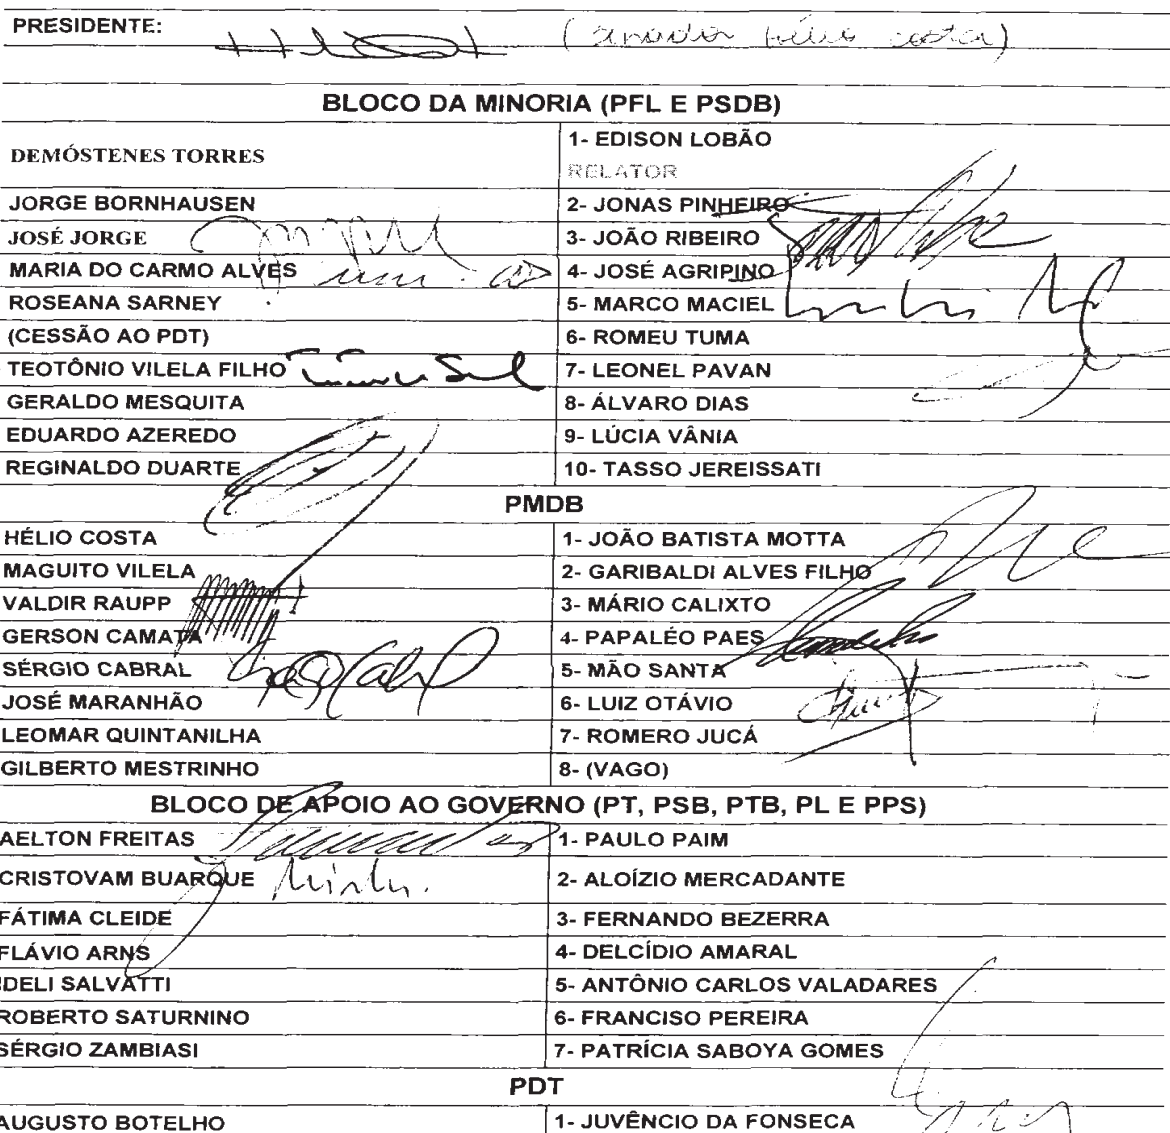 PRESIDENTE: (Senador Hélio Costa)
BLOCO DA MINORIA (PFL E PSDB)
DEMÓSTENES TORRES 1- EDISON LOBÃO
RELATOR
JORGE BORNHAUSEN 2- JONAS PINHEIRO
JOSÉ JORGE 3- JOÃO RIBEIRO
MARIA DO CARMO ALVES 4- JOSÉ AGRIPINO
ROSEANA SARNEY 5- MARCO MACIEL
(CESSÃO AO PDT) 6- ROMEU TUMA
TEOTÔNIO VILELA FILHO 7- LEONEL PAVAN
GERALDO MESQUITA 8- ÁLVARO DIAS
EDUARDO AZEREDO 9- LÚCIA VÂNIA
REGINALDO DUARTE 10- TASSO JEREISSATI
PMDB
HÉLIO COSTA 1- JOÃO BATISTA MOTTA
MAGUITO VILELA 2- GARIBALDI ALVES FILHO
VALDIR RAUPP 3- MÁRIO CALIXTO
GERSON CAMATA 4- PAPALÉO PAES
SÉRGIO CABRAL 5- MÃO SANTA
JOSÉ MARANHÃO 6- LUIZ OTÁVIO
LEOMAR QUINTANILHA 7- ROMERO JUCÁ
GILBERTO MESTRINHO 8- (VAGO)
BLOCO DE APOIO AO GOVERNO (PT, PSB, PTB, PL E PPS)
AELTON FREITAS 1- PAULO PAIM
CRISTOVAM BUARQUE 2- ALOÍZIO MERCADANTE
FÁTIMA CLEIDE 3- FERNANDO BEZERRA
FLÁVIO ARNS 4- DELCÍDIO AMARAL
IDELI SALVATTI 5- ANTÔNIO CARLOS VALADARES
ROBERTO SATURNINO 6- FRANCISO PEREIRA
SÉRGIO ZAMBIASI 7- PATRÍCIA SABOYA GOMES
PDT
AUGUSTO BOTELHO 1- JUVÊNCIO DA FONSECA